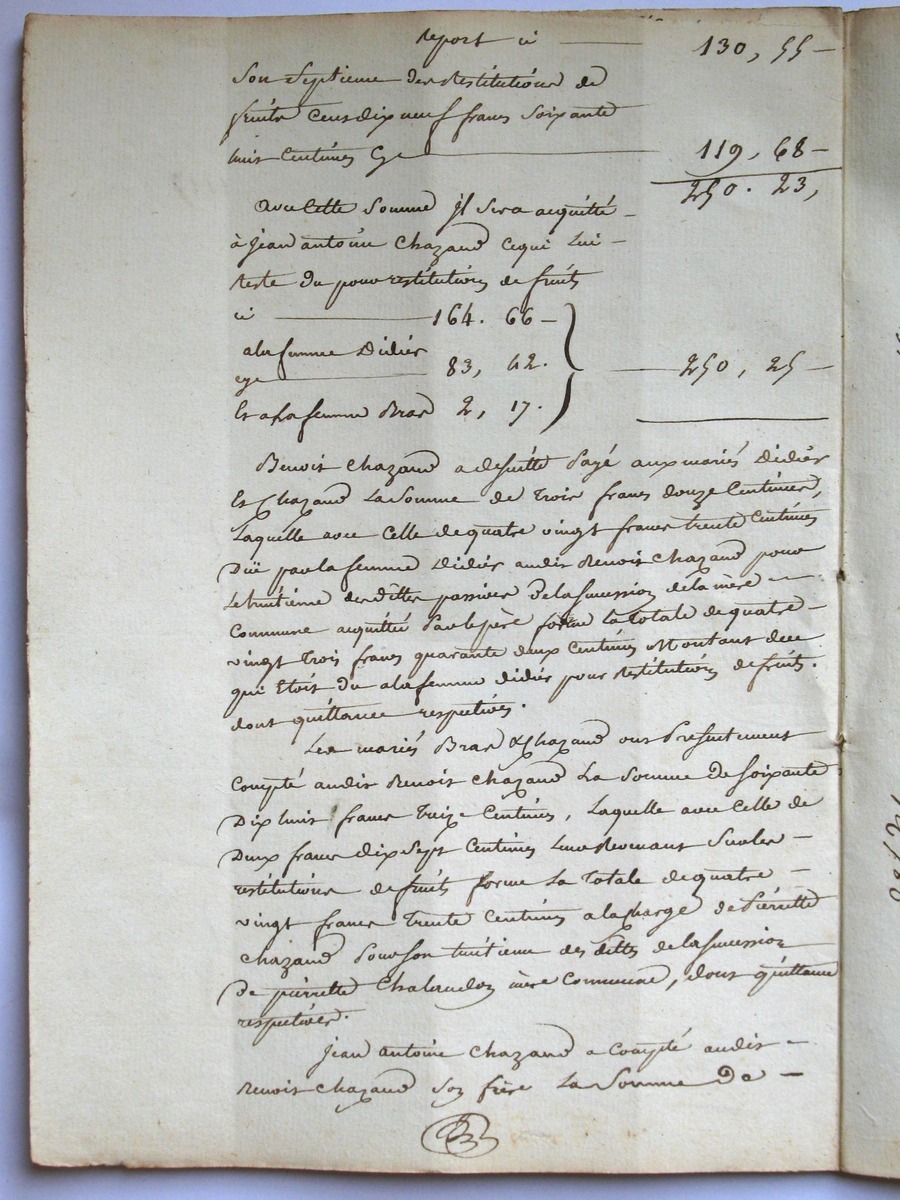 report ci — 130, 55 —
Son Septieme des Restitutions de
fruits Cent dix neuf francs Soixante
huit Centimes Cy — 119, 68 —
250. 23,
Avec Cette Somme Jl Sera acquitté —
à Jean antoine Chazaud Cequi Lui —
Reste du pour restitutions de fruits
ci — 164. 66 —
ala femme Didier
cy — 83, 42. — 250, 25 —
Et ala femme Bras 2, 17.
Benoit Chazaud a desuitte Payé aux mariés Didier
Et Chazaud La Somme de Trois francs douze Centimes,
Laquelle avec Celle de quatre vingt francs trente Centimes
Düe par la femme Didier audit Benoit Chazaud pour
Le huitieme des dettes passives de la succession de la mère —
Commune acquittée Par le père forme la totale de quatre —
vingt Trois francs quarante deux Centimes Montant de ce
qui Etoit du ala femme Didier pour Restitutions de fruits.
dont quittance respectives.
Les mariés Bras & Chazaud ont Presentement
Compté audit Benoit Chazaud La Somme de Soixante
Dix huit francs Treize Centimes, Laquelle avec Celle de
Deux francs dix Sept Centimes Leur Revenant Sur les —
restitutions de fruits forme La Totale de quatre —
vingt francs Trente Centimes a la charge de Pierrette
Chazaud Pour Son huitieme des dettes de la succession
De pierrette Chalandon mère Commune, dont quittance
respectives.
Jean antoine Chazaud a Compté audit —
Benoit Chazaud Son frère La Somme De —